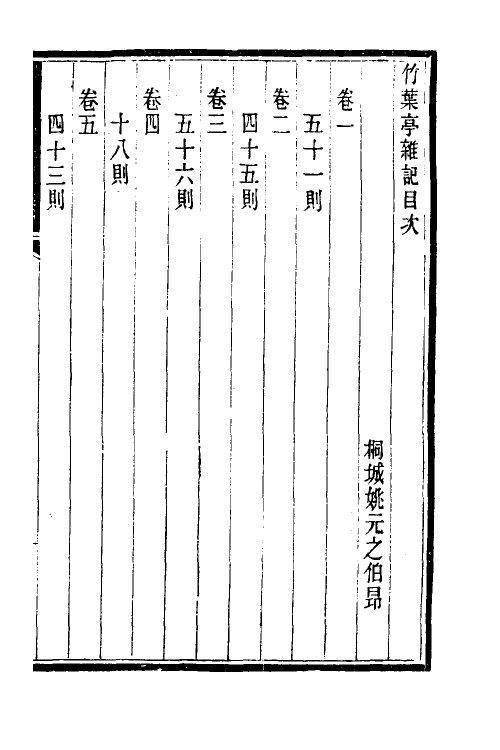 竹葉亭雜記目次
桐城姚元之伯昂
卷一
五十一則
卷二
四十五則
卷三
五十六則
卷四
十八則
卷五
四十三則